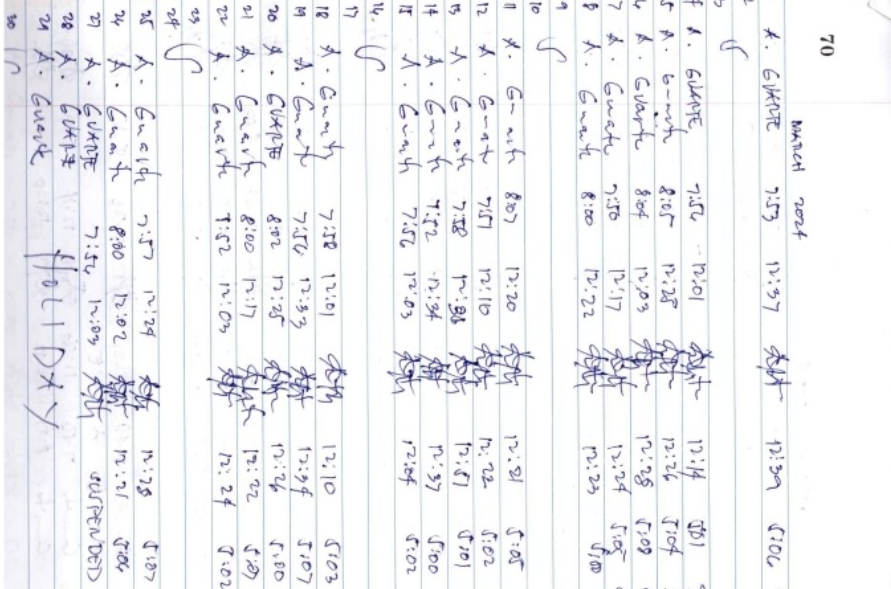 70
MARCH 2024
A. GUARTE 7:53 12:37 12:39 5:06
2
3
A. GUARTE 7:56 12:01 12:14 5:01
5 A. Guarte 8:05 12:25 12:26 5:04
6 A. Guarte 8:04 12:03 12:28 5:08
7 A. Guarte 7:50 12:17 12:24 5:05
8 A. Guarte 8:00 12:22 12:23 5:00
9
10
11 A. Guarte 8:07 12:20 12:21 5:05
12 A. Guarte 7:51 12:10 12:22 5:02
13 A. Guarte 7:58 12:51 5:01
14 A. Guarte 7:52 12:34 12:37 5:00
15 A. Guarte 7:56 12:03 12:04 5:02
16.
17
18 A. Guarte 7:58 12:01 12:10 5:03
19 A. Guarte 7:56 12:33 12:34 5:07
20 A. GUARTE 8:02 12:25 12:26 5:00
21 A. Guarte 8:00 12:17 12:22 5:07
22 A. Guarte 7:52 12:03 12:24 5:02
23
24.
25 A. Guarte 7:57 12:24 12:28 5:07
26 A. Guarte 8:00 12:02 12:21 5:06
27 A. GUARTE 7:56 12:03 SUSPENDED
28 A. GUARTE HOLIDAY
29 A. Guarte
30